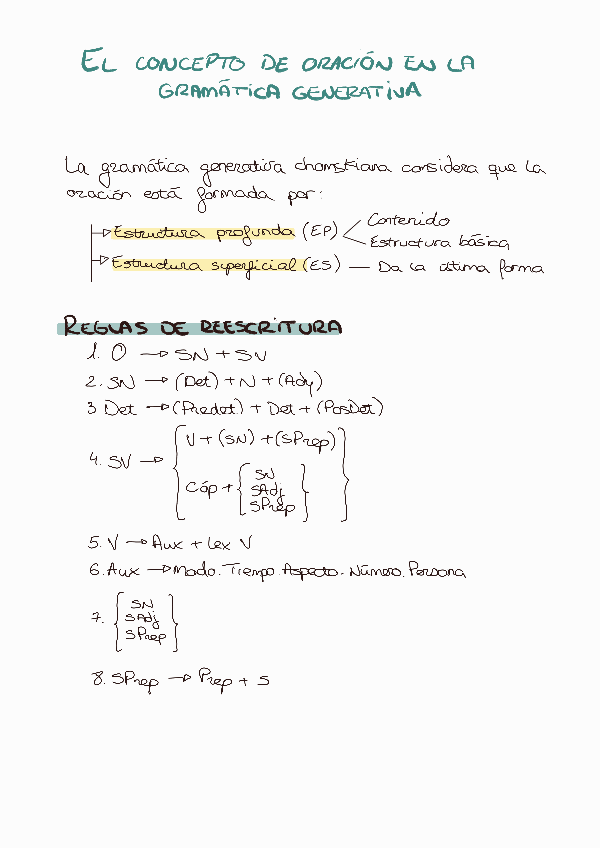 EL CONCEPTO DE ORACIÓN EN LA
GRAMÁTICA GENERATIVA
La gramática generativa chomskiana considera que la
oración está formada por:
Estructura profunda (EP)
Contenido
Estructura básica
Estructura superficial (ES) — Da la última forma
REGLAS DE REESCRITURA
1. O → SN + SV
2. SN → (Det) + N + (Adj)
3 Det → (Predet) + Det + (PosDet)
4. SV →
V + (SN) + (SPrep)
Cóp +
SN
SAdj
SPrep
5. V → Aux + Lex V
6. Aux → Modo. Tiempo. Aspecto. Número. Persona
7.
SN
SAdj
SPrep
8. SPrep → Prep + S